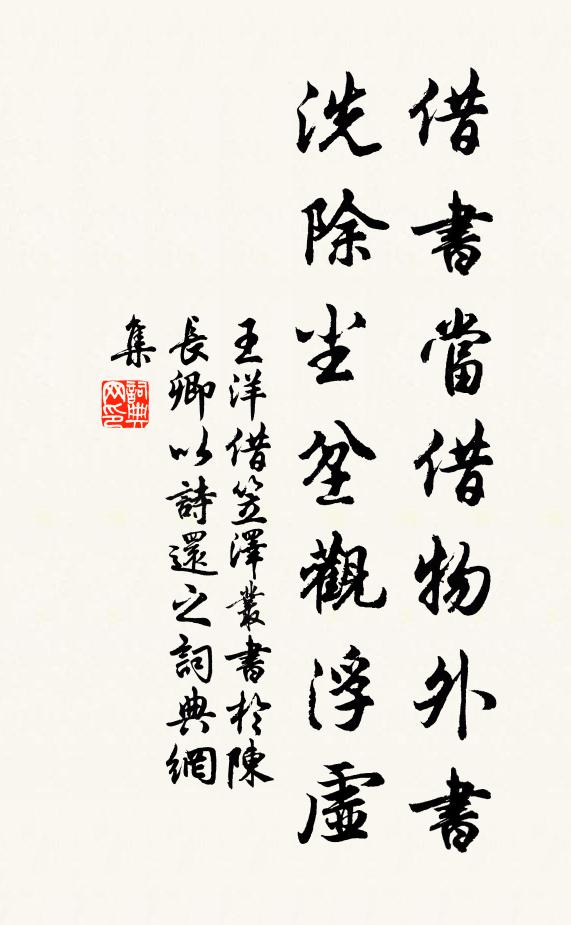 借書當借物外書
洗除尘坌觀浮虛
王洋借笠澤叢書於陳
長卿以詩還之詞典網
集
詞典
网印